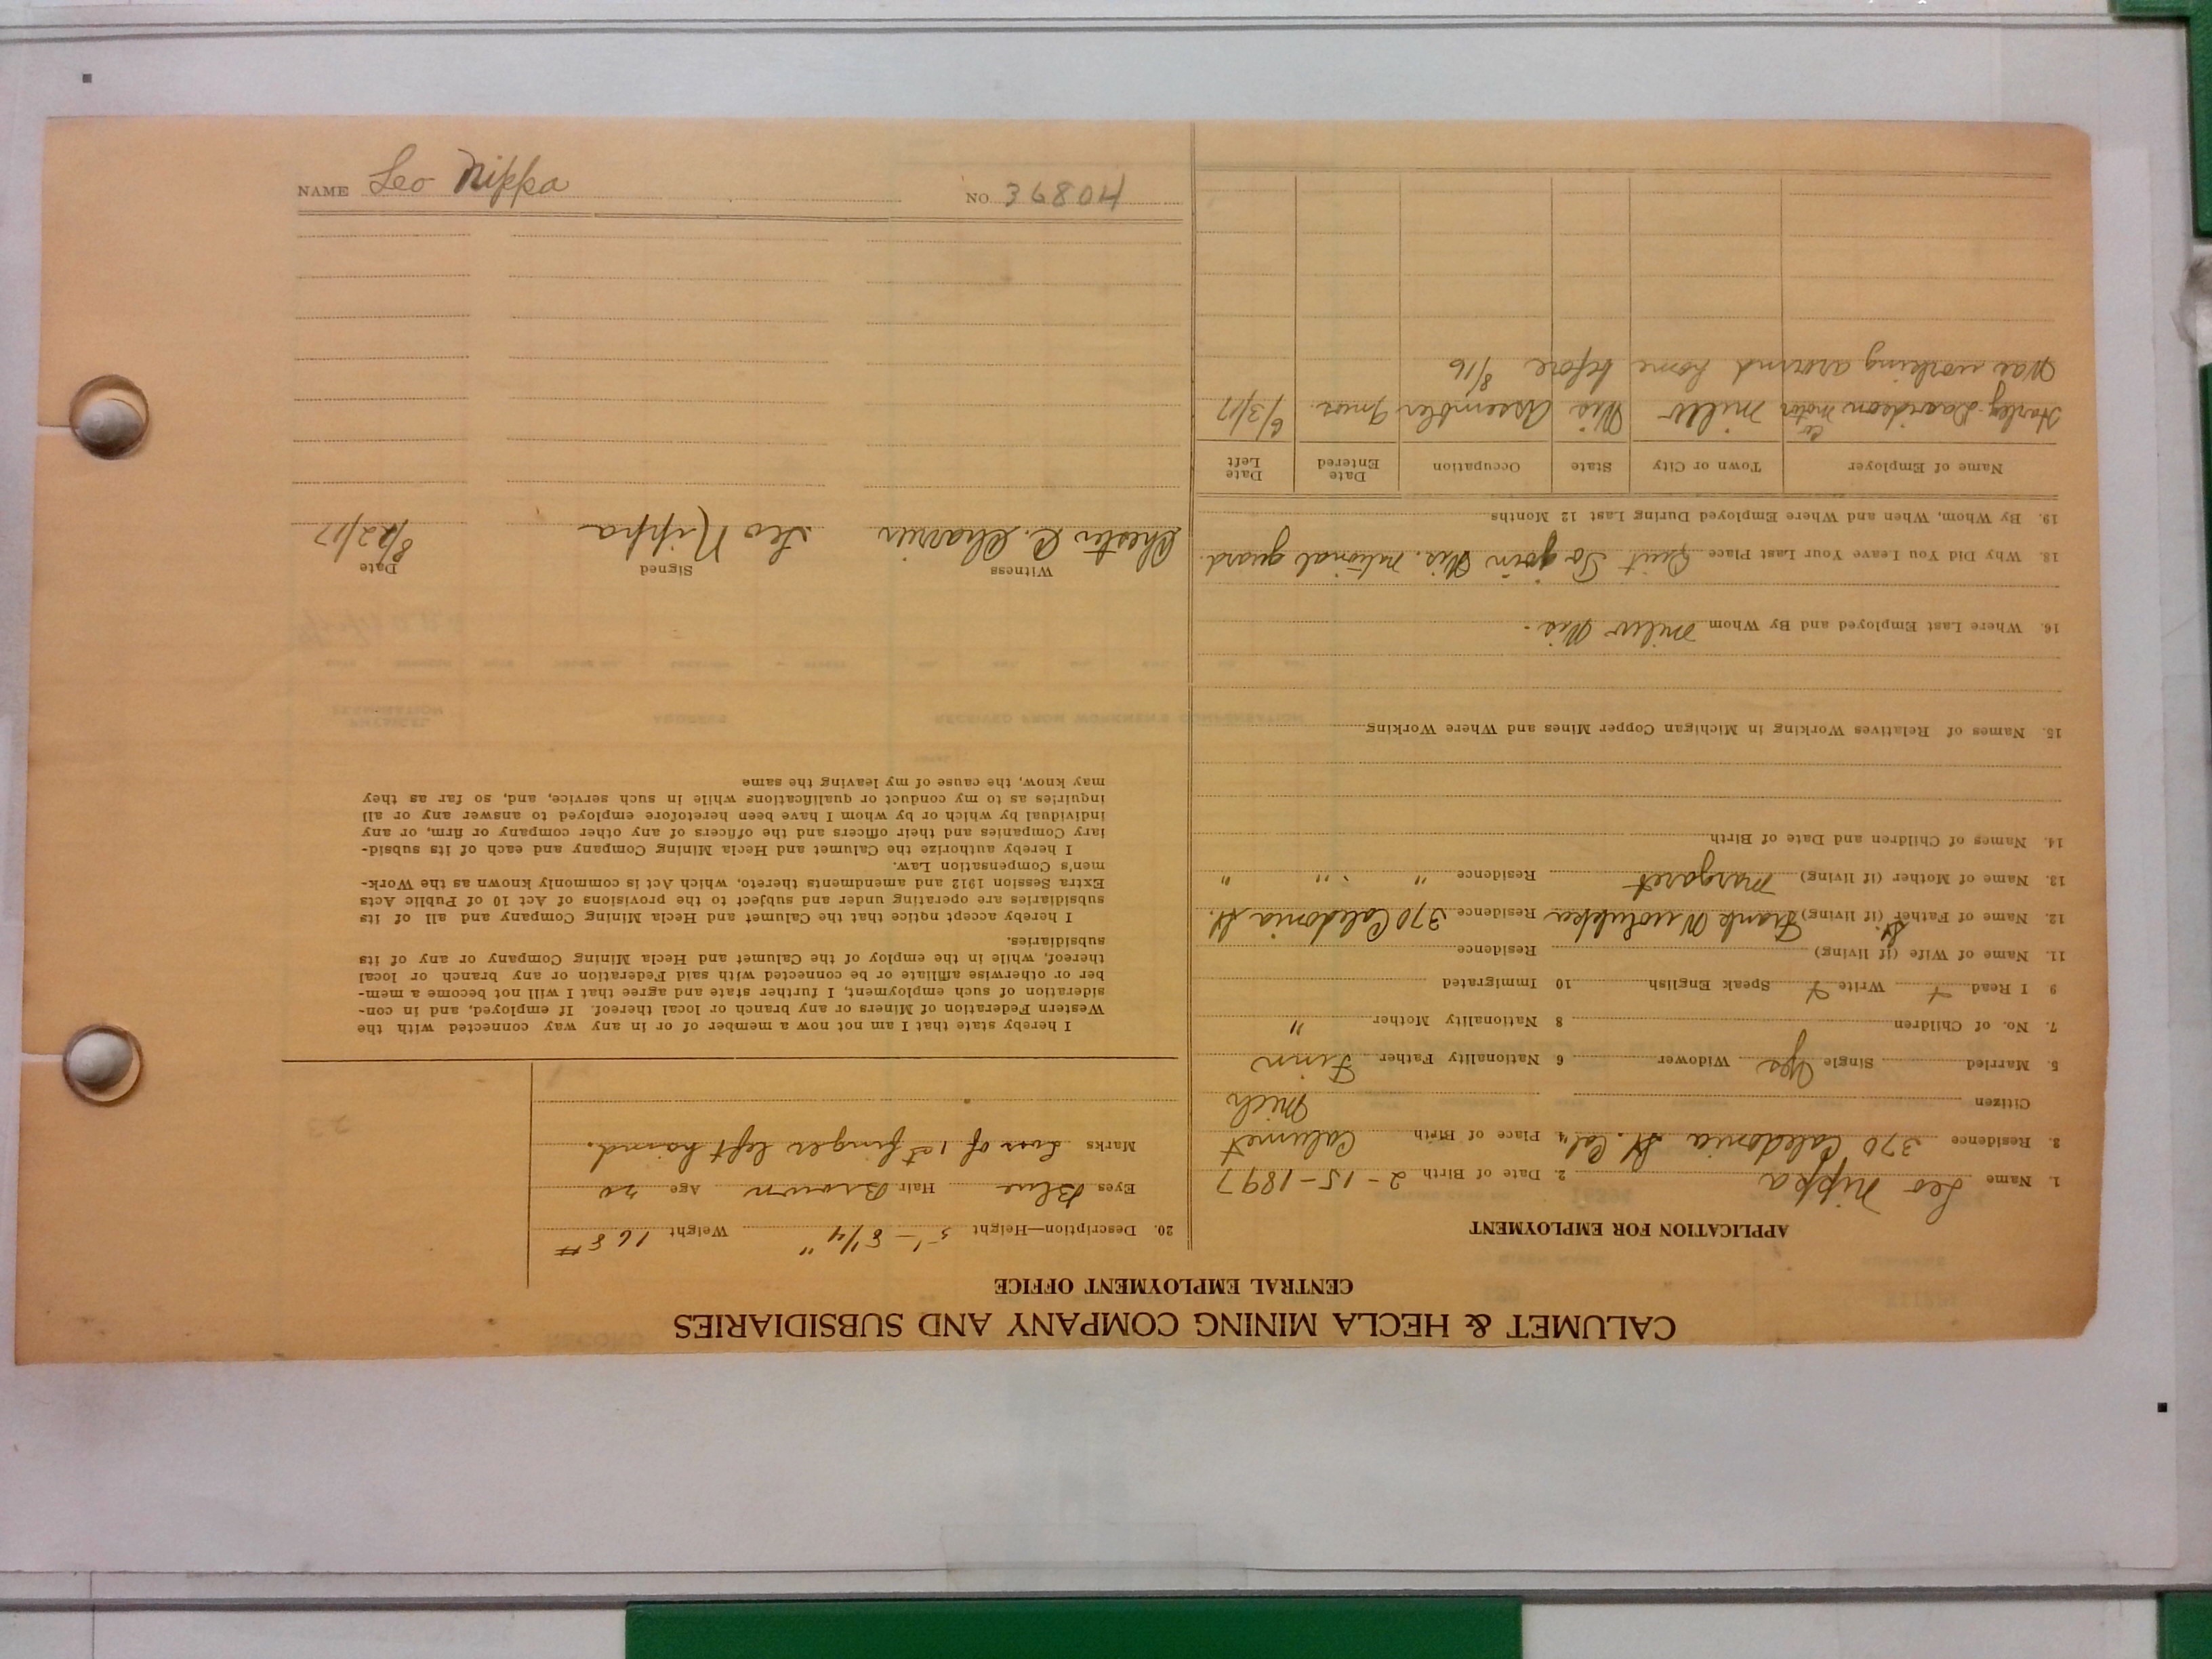 CALUMET & HECLA MINING COMPANY AND SUBSIDIARIES
CENTRAL EMPLOYMENT OFFICE
APPLICATION FOR EMPLOYMENT
1. Name Leo Nippa 2. Date of Birth 2-15-1897
3. Residence 370 Caledonia St. Cal 4 Place of Birth Calumet
Citizen Mich
5. Married Single Yes Widower 6 Nationality Father Finn
7. No. of Children 8 Nationality Mother "
9 I Read Write Speak English 10 Immigrated
11. Name of Wife (if living) Residence
12. Name of Father (if living) Frank Residence 370 Caledonia St.
13. Name of Mother (if living) Margaret Residence " " "
14. Names of Children and Date of Birth
15. Names of Relatives Working in Michigan Copper Mines and Where Working
16. Where Last Employed and By Whom Milw Wis.
18. Why Did You Leave Your Last Place Quit To join Wis. national guard.
19. By Whom, When and Where Employed During Last 12 Months
Name of Employer Town or City State Occupation Date Entered Date Left
Harley Davidson motor co Milw Wis Assembler 9 mos. 6/3/17
Was working around home before 8/16
20. Description—Height 5'-8 1/4" Weight 168#
Eyes Blue Hair Brown Age 20
Marks Loss of 1st finger left hand.
I hereby state that I am not now a member of or in any way connected with the
Western Federation of Miners or any branch or local thereof. If employed, and in con-
sideration of such employment, I further state and agree that I will not become a mem-
ber or otherwise affiliate or be connected with said Federation or any branch or local
thereof, while in the employ of the Calumet and Hecla Mining Company or any of its
subsidiaries.
I hereby accept notice that the Calumet and Hecla Mining Company and all of its
subsidiaries are operating under and subject to the provisions of Act 10 of Public Acts
Extra Session 1912 and amendments thereto, which Act is commonly known as the Work-
men's Compensation Law.
I hereby authorize the Calumet and Hecla Mining Company and each of its subsid-
iary Companies and their officers and the officers of any other company or firm, or any
individual by which or by whom I have been heretofore employed to answer any or all
inquiries as to my conduct or qualifications while in such service, and, so far as they
may know, the cause of my leaving the same
Witness Signed Date
Chester C. Leo Nippa 8/22/17
NAME Leo Nippa NO. 36804